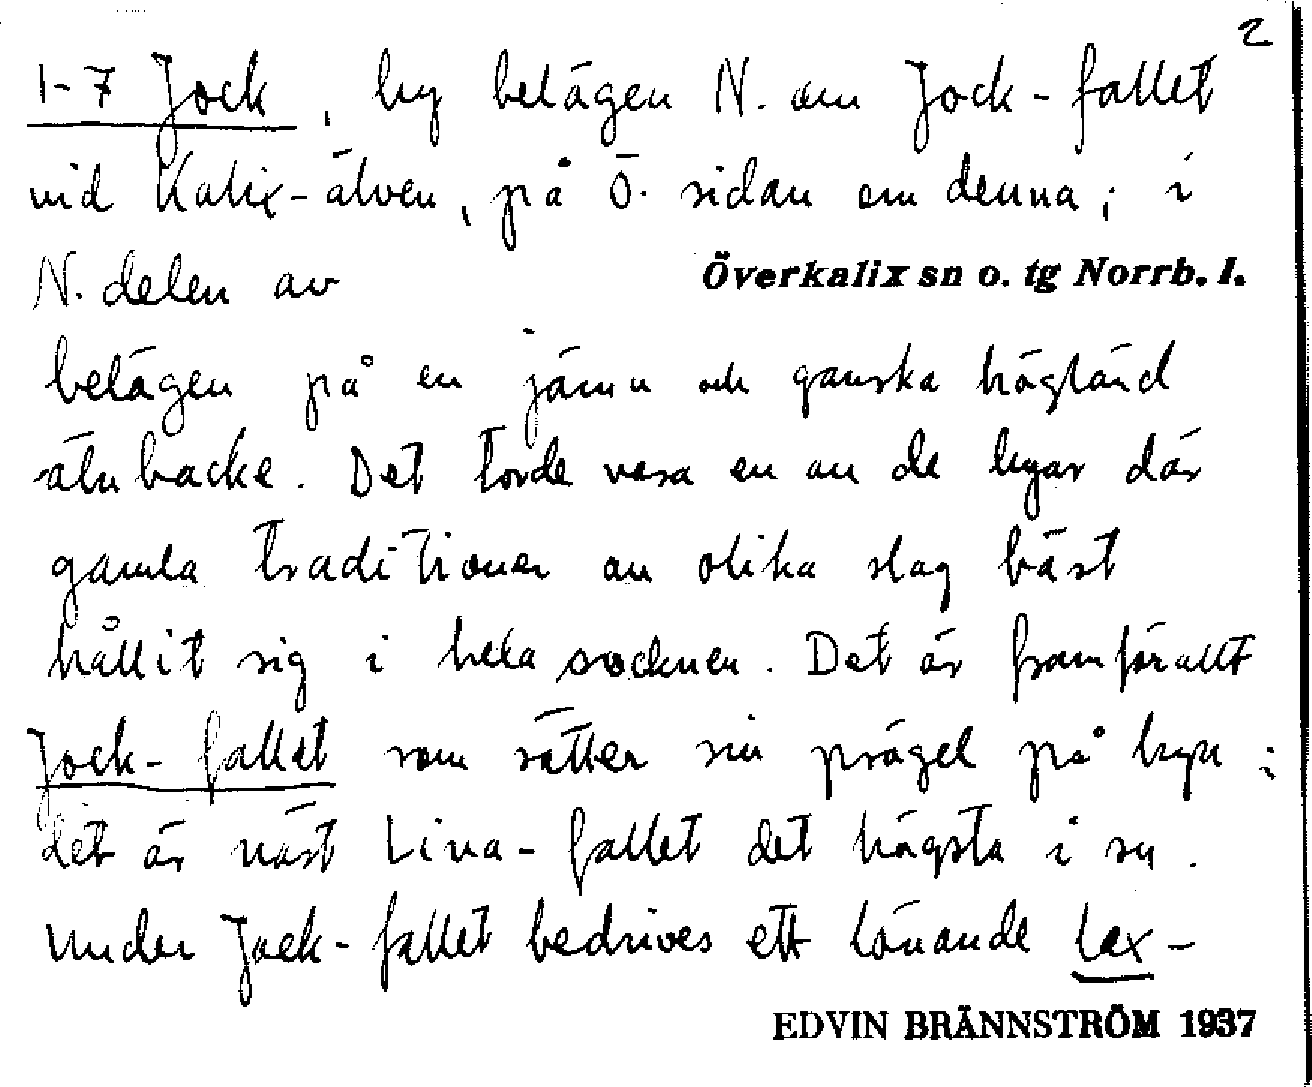 2
1-7 Jock, by belägen N. om Jock-fallet
vid Kalix-älven, på Ö. sidan om denna; i
N. delen av Överkalix sn o. tg Norrb. l.
belägen på en jämn och ganska högländ
älvbacke. Det torde vara en av de byar där
gamla traditioner av olika slag bäst
hållit sig i hela socknen. Det är framförallt
Jock-fallet som sätter sin prägel på byn;
det är näst Lina-fallet det högsta i sn.
Under Jock-fallet bedrives ett lönande lax-
EDVIN BRÄNNSTRÖM 1937